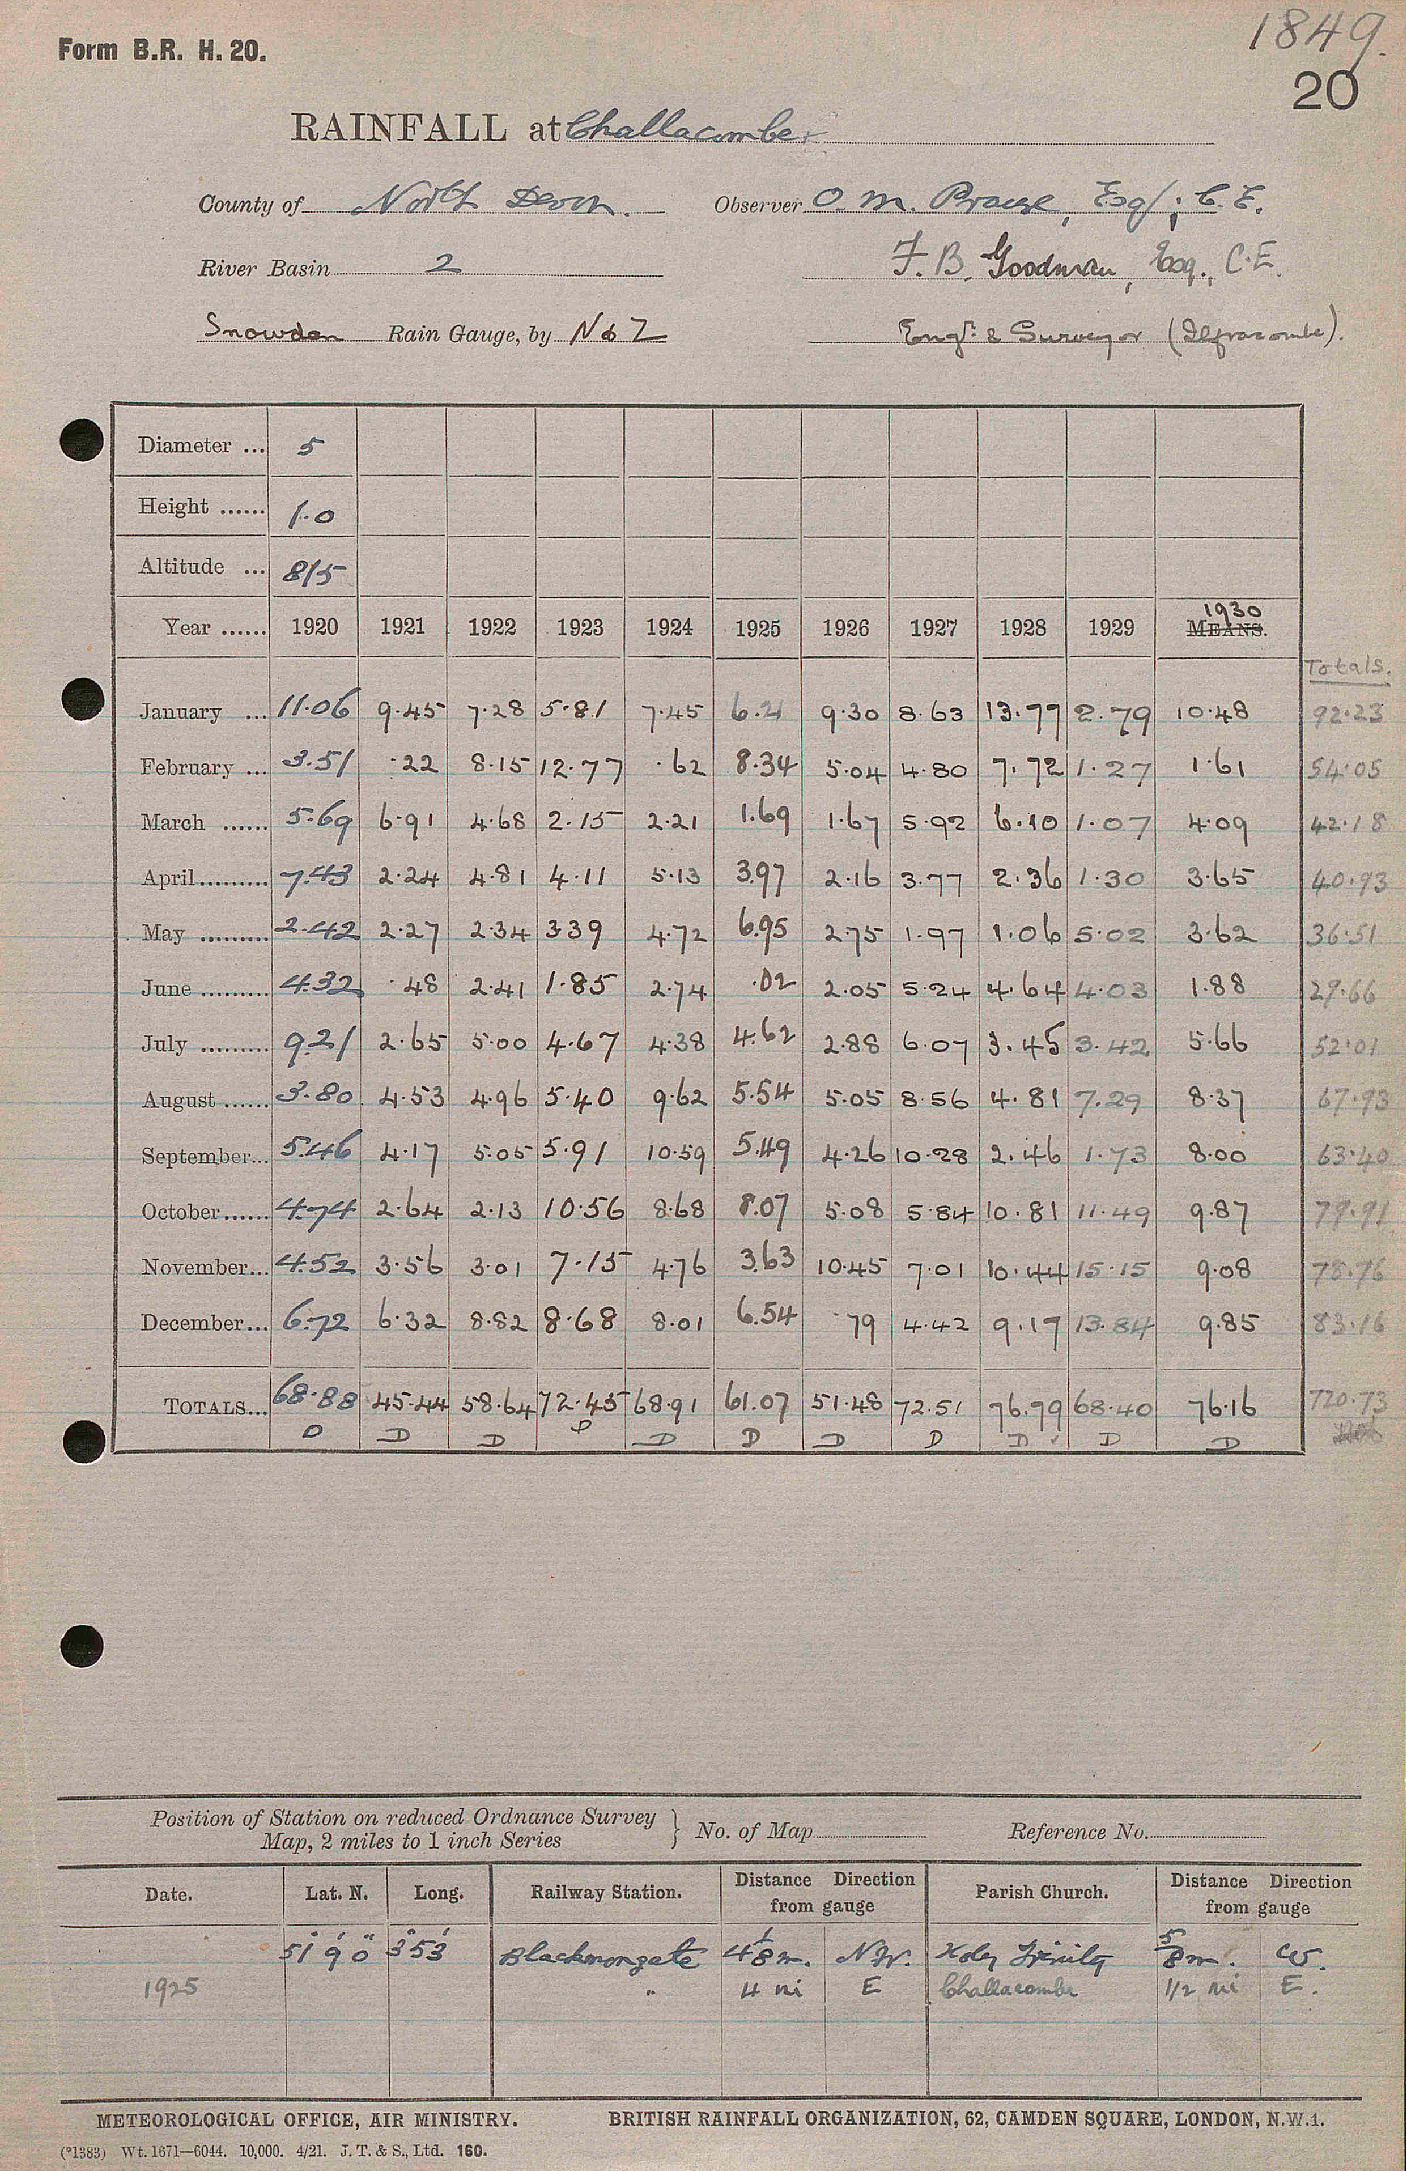 1849.
Form B.R. H. 20.
20
RAINFALL at Challacombe
County of North Devon. Observer O. M. Prouse, Esq; C. E.
River Basin 2 F. B. Goodman, Esq., C.E.
Snowdon Rain Gauge, by N & Z Engr. & Surveyor (Ilfracombe).
Diameter ... 5
Height ...... 1.0
Altitude ... 815
Year ...... 1920 1921 1922 1923 1924 1925 1926 1927 1928 1929 1930 MEANS.
Totals.
January ... 11.06 9.45 7.28 5.81 7.45 6.21 9.30 8.63 13.77 2.79 10.48 92.23
February ... 3.51 .22 8.15 12.77 .62 8.34 5.04 4.80 7.72 1.27 1.61 54.05
March ...... 5.69 6.91 4.68 2.15 2.21 1.69 1.67 5.92 6.10 1.07 4.09 42.18
April ......... 7.43 2.24 4.81 4.11 5.13 3.97 2.16 3.77 2.36 1.30 3.65 40.93
May ......... 2.42 2.27 2.34 3.39 4.72 6.95 2.75 1.97 1.06 5.02 3.62 36.51
June ......... 4.32 .48 2.41 1.85 2.74 .02 2.05 5.24 4.64 4.03 1.88 29.66
July ......... 9.21 2.65 5.00 4.67 4.38 4.62 2.88 6.07 3.45 3.42 5.66 52.01
August ...... 3.80 4.53 4.96 5.40 9.62 5.54 5.05 8.56 4.81 7.29 8.37 67.93
September... 5.46 4.17 5.05 5.91 10.59 5.49 4.26 10.28 2.46 1.73 8.00 63.40
October ...... 4.74 2.64 2.13 10.56 8.68 8.07 5.08 5.84 10.81 11.49 9.87 79.91
November... 4.52 3.56 3.01 7.15 4.76 3.63 10.45 7.01 10.44 15.15 9.08 78.76
December... 6.72 6.32 8.82 8.68 8.01 6.54 .79 4.42 9.17 13.84 9.85 83.16
TOTALS... 68.88 45.44 58.64 72.45 68.91 61.07 51.48 72.51 76.79 68.40 76.16 720.73
D D D D D D D D D D D
Position of Station on reduced Ordnance Survey
Map, 2 miles to 1 inch Series } No. of Map Reference No.
Date. Lat. N. Long. Railway Station. Distance Direction from gauge Parish Church. Distance Direction from gauge
51° 9' 0" 3° 53' Blackmoorgate 4 1/8 m. N.W. Holy Trinity 5/8 m. W.
1925 " 4 mi E Challacombe 1/2 mi E.
METEOROLOGICAL OFFICE, AIR MINISTRY. BRITISH RAINFALL ORGANIZATION, 62, CAMDEN SQUARE, LONDON, N.W.1.
(*1383) Wt. 1671—6044. 10,000. 4/21. J. T. & S., Ltd. 160.